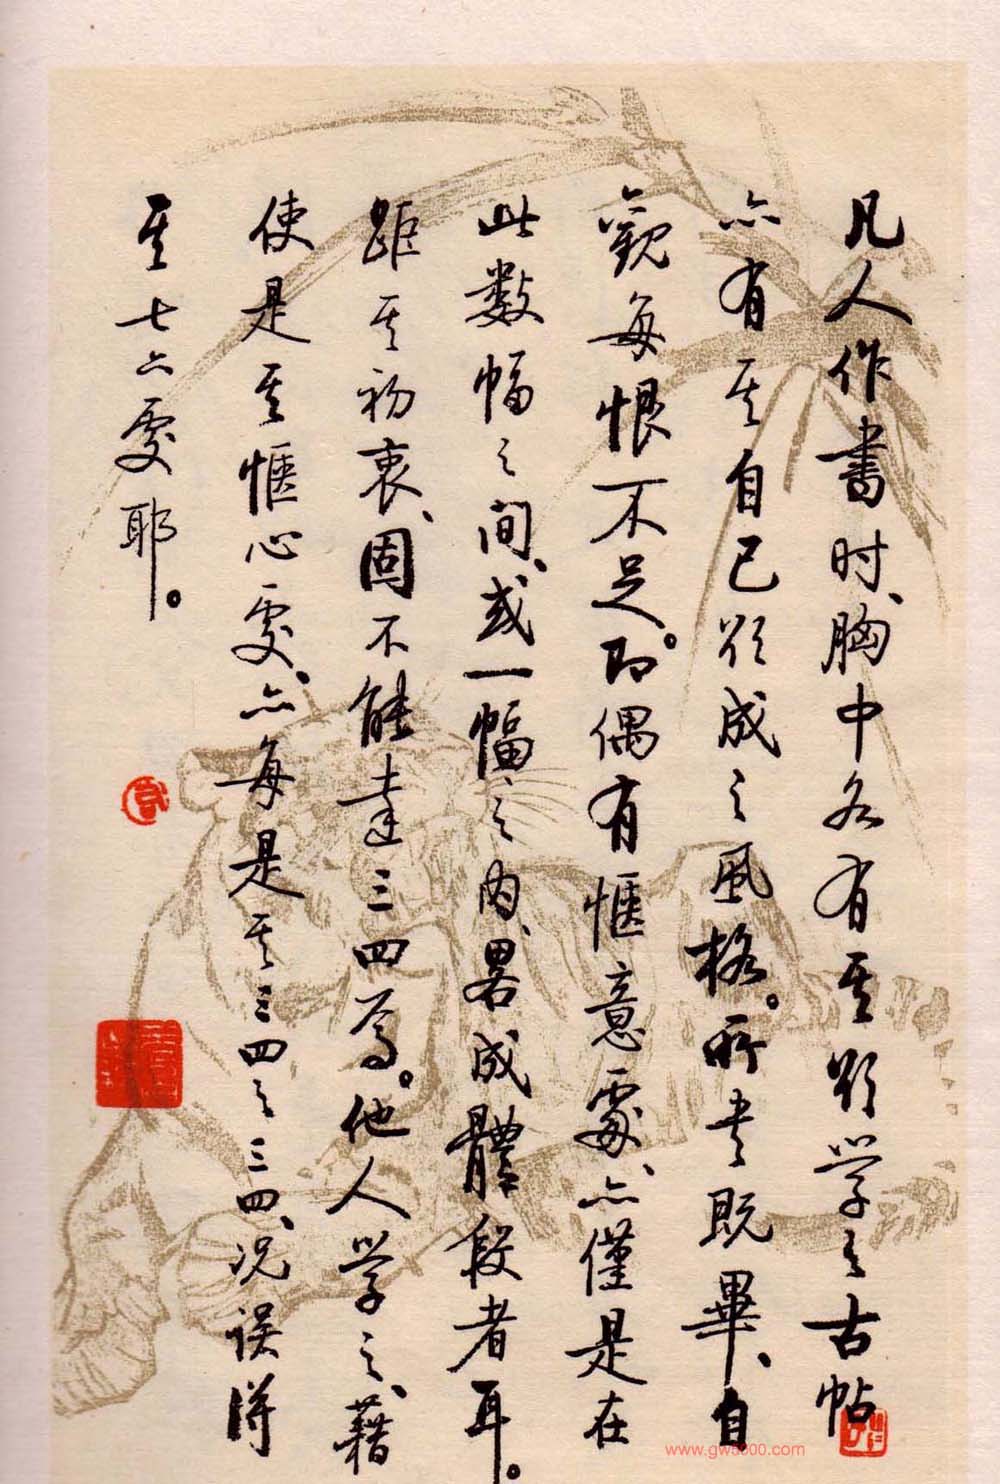 凡人作書时、胸中各有其欲学之古帖
亦有其自己欲成之風格。所书既畢、自
觀每恨不足。即偶有惬意處、亦僅是在
此数幅之间、或一幅之内、畧成體段者耳。
距其初衷、固不能達三四焉。他人学之、藉
使是其惬心處、亦每是其三四之三四、况误得
其七六處耶。
www.gw5000.com